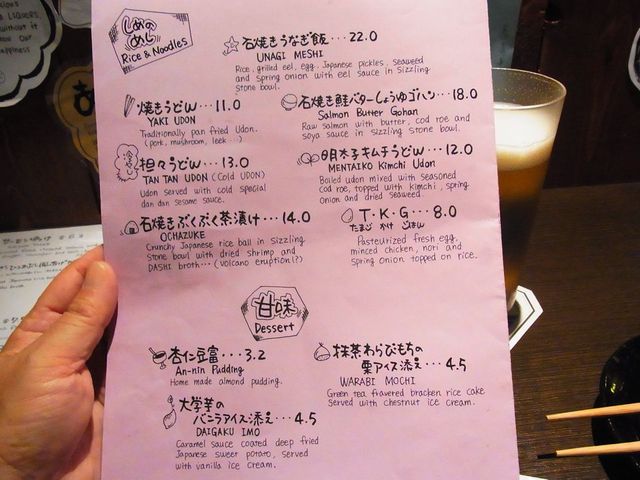 LIQUORS.
without it
ow Our
ppiness
しめの
めし
Rice & Noodles
石焼きうなぎ飯・・・22.0
UNAGI MESHI
Rice, grilled eel, egg, Japanese pickles, seaweed
and spring onion with eel sauce in Sizzling
Stone bowl.
焼きうどん・・・11.0
YAKI UDON
Traditionally pan fried Udon.
(pork, mushroom, leek...)
石焼き鮭バターしょうゆゴハン・・・18.0
Salmon Butter Gohan
Raw salmon with butter, cod roe and
soya sauce in sizzling stone bowl.
担々うどん・・・13.0
TAN TAN UDON (Cold UDON)
Udon served with cold special
dan dan sesame sauce.
明太子キムチうどん・・・12.0
MENTAIKO Kimchi Udon
Boiled udon mixed with seasoned
cod roe, topped with kimchi, spring
onion and dried seaweed.
石焼きぶくぶく茶漬け・・・14.0
OCHAZUKE
Crunchy Japanese rice ball in Sizzling
Stone bowl with dried shrimp and
DASHI broth... (volcano eruption!?)
T・K・G・・・8.0
たまご かけ ごはん
Pasteurized fresh egg,
minced chicken, nori and
spring onion topped on rice.
甘味
Dessert
杏仁豆富・・・3.2
An-nin Pudding
Home made almond pudding.
抹茶わらびもちの
栗アイス添え・・・4.5
WARABI MOCHI
Green tea fravered bracken rice cake
Served with chestnut ice cream.
大学芋の
バニラアイス添え・・・4.5
DAIGAKU IMO
Caramel sauce coated deep fried
Japanese sweet potato, served
with vanilla ice cream.